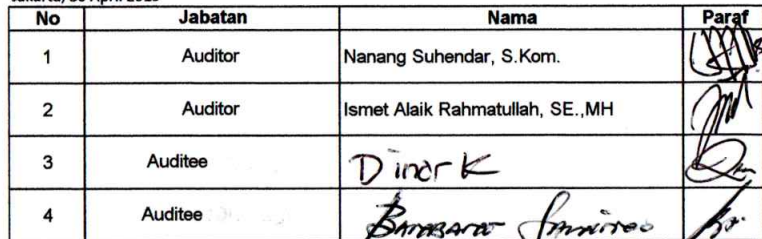 No Jabatan Nama Paraf
1 Auditor Nanang Suhendar, S.Kom.
2 Auditor Ismet Alaik Rahmatullah, SE.,MH
3 Auditee Dinar K
4 Auditee Bambang